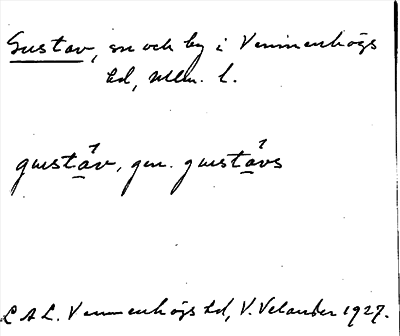 Gustav, sn och by i Vemmenhögs
hd, Mlm. l.
gustāv, gen. gustāvs
LAL. Vemmenhögs hd, V. Velander 1927.